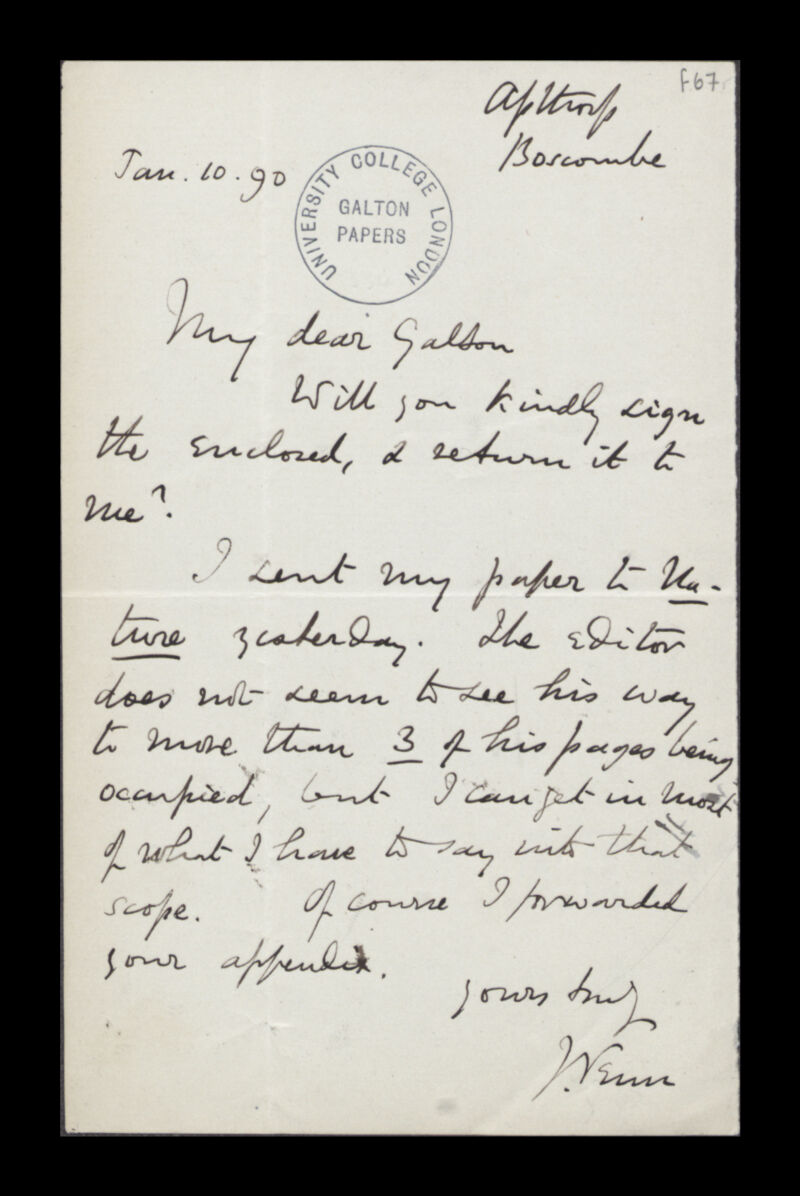 f67
Apthorp
Boscombe
Jan. 10. 90
UNIVERSITY COLLEGE LONDON
GALTON
PAPERS
My dear Galton
Will you kindly sign
the enclosed, & return it to
me?
I sent my paper to Na-
ture yesterday. The editor
does not seem to see his way
to more than 3 of his pages being
occupied, but I can get in most
of what I have to say into that
scope. Of course I forwarded
your appendix.
yours truly
J. Venn